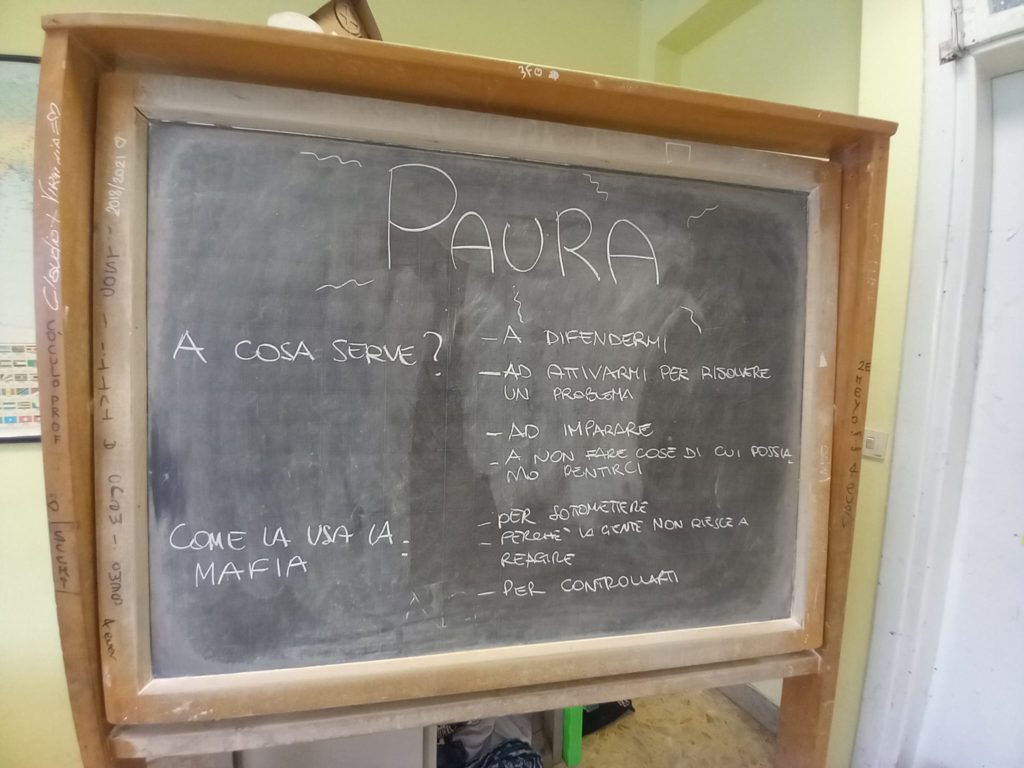 3FO
PAURA
A COSA SERVE?
- A DIFENDERMI
- AD ATTIVARMI PER RISOLVERE
UN PROBLEMA
- AD IMPARARE
- A NON FARE COSE DI CUI POSSIA_
MO PENTIRCI
COME LA USA LA
MAFIA
:
- PER SOTOMETTERE
- PERCHE' LA GENTE NON RIESCE A
REAGIRE
- PER CONTROLLARTI
Claudio x Virginia
2018/2021